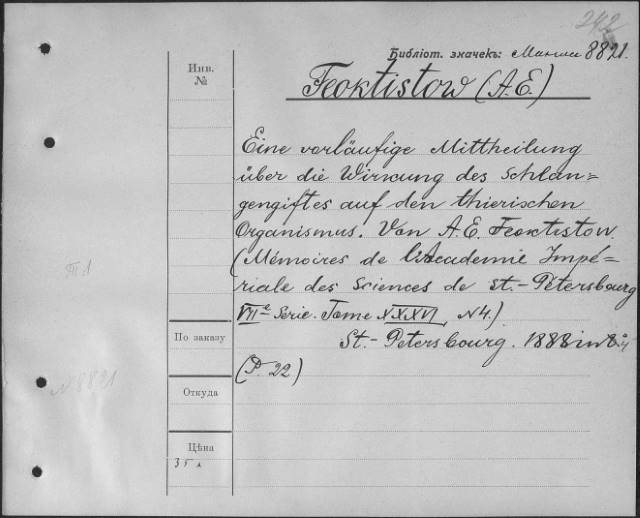 242
Библіот. значекъ: 8821.
Инв.
№
Feoktistow (A.E.)
Eine vorläufige Mittheilung
über die Wirkung des Schlan=
gengiftes auf den thierischen
Organismus. Von A.E. Feoktistow
(Mémoires de l'Academie Impé=
riale des Sciences de St.-Pétersbourg
VIIe Serie. Tome XXXVI, N4.)
По заказу
St.-Petersbourg. 1888 in
(P. 22.)
N8821
Откуда
Цѣна
35